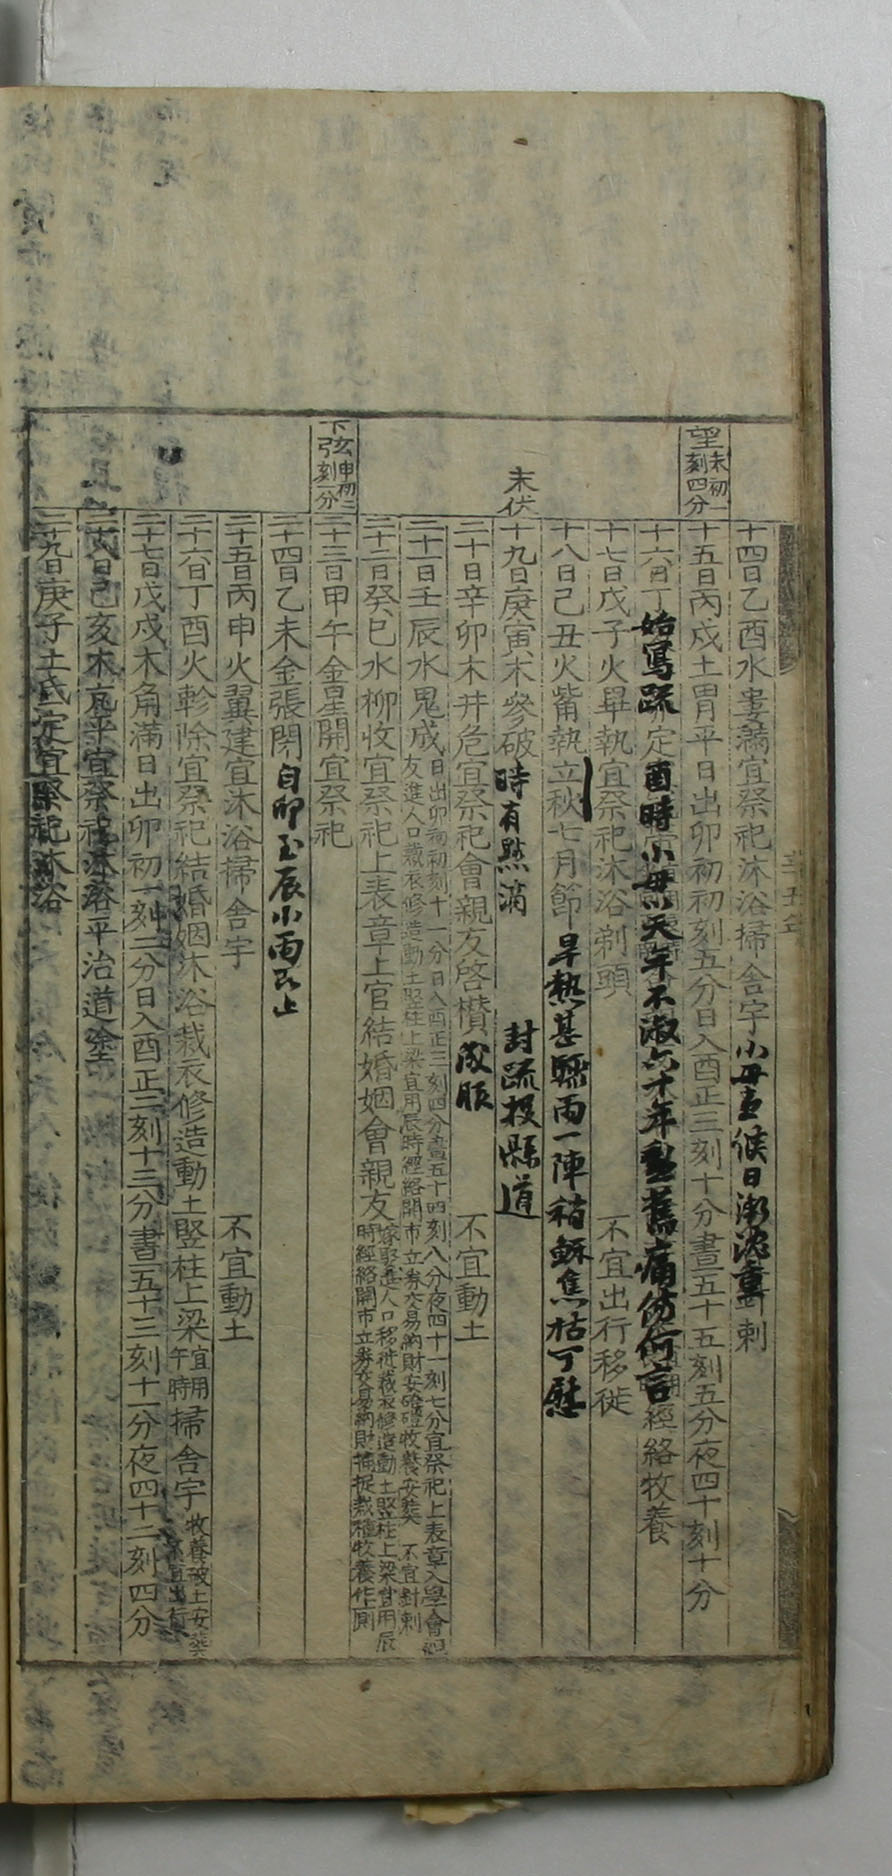 十四日乙酉水婁滿宜祭祀沐浴掃舍宇小母患候日漸沈重 刺
望未初一刻四分
十五日丙戌土胃平日出卯初初刻五分日入酉正三刻十分晝五十五刻五分夜四十刻十分
十六日丁 始寫疏 定酉時小母以天年不淑六十年 舊痛 何言 經絡牧養
十七日戊子火畢執宜祭祀沐浴剃頭 不宜出行移徙
十八日己丑火觜執立秋七月節 旱熱甚驟雨一陣稍穌焦枯可慰
末伏
十九日庚寅木參破時有點滴 封疏投縣道
二十日辛卯木井危宜祭祀會親友啓欑成服 不宜動土
二十一日壬辰水鬼成日出卯初初刻十一分日入酉正三刻四分晝五十四刻八分夜四十一刻七分宜祭祀上表章入學會親
友進人口裁衣修造動土竪柱上梁宜用辰時經絡開市立券交易納財安碓磑牧養安葬 不宜針刺
二十二日癸巳水柳收宜祭祀上表章上官結婚姻會親友嫁娶進人口移徙裁衣修造動土竪柱上梁宜用辰
時經絡開市立券交易納財捕捉栽種牧養作厠
下弦申初二刻一分
二十三日甲午金星開宜祭祀
二十四日乙未金張閉自卯至辰小雨即止
二十五日丙申火翼建宜沐浴掃舍宇 不宜動土
二十六日丁酉火軫除宜祭祀結婚姻沐浴裁衣修造動土竪柱上梁宜用午時掃舍宇牧養破土安葬不宜出行
二十七日戊戌木角滿日出卯初一刻二分日入酉正二刻十三分晝五十三刻十一分夜四十二刻四分
二十八日己亥木亢平宜祭祀沐浴平治道塗
二十九日庚子土氐定宜祭祀沐浴